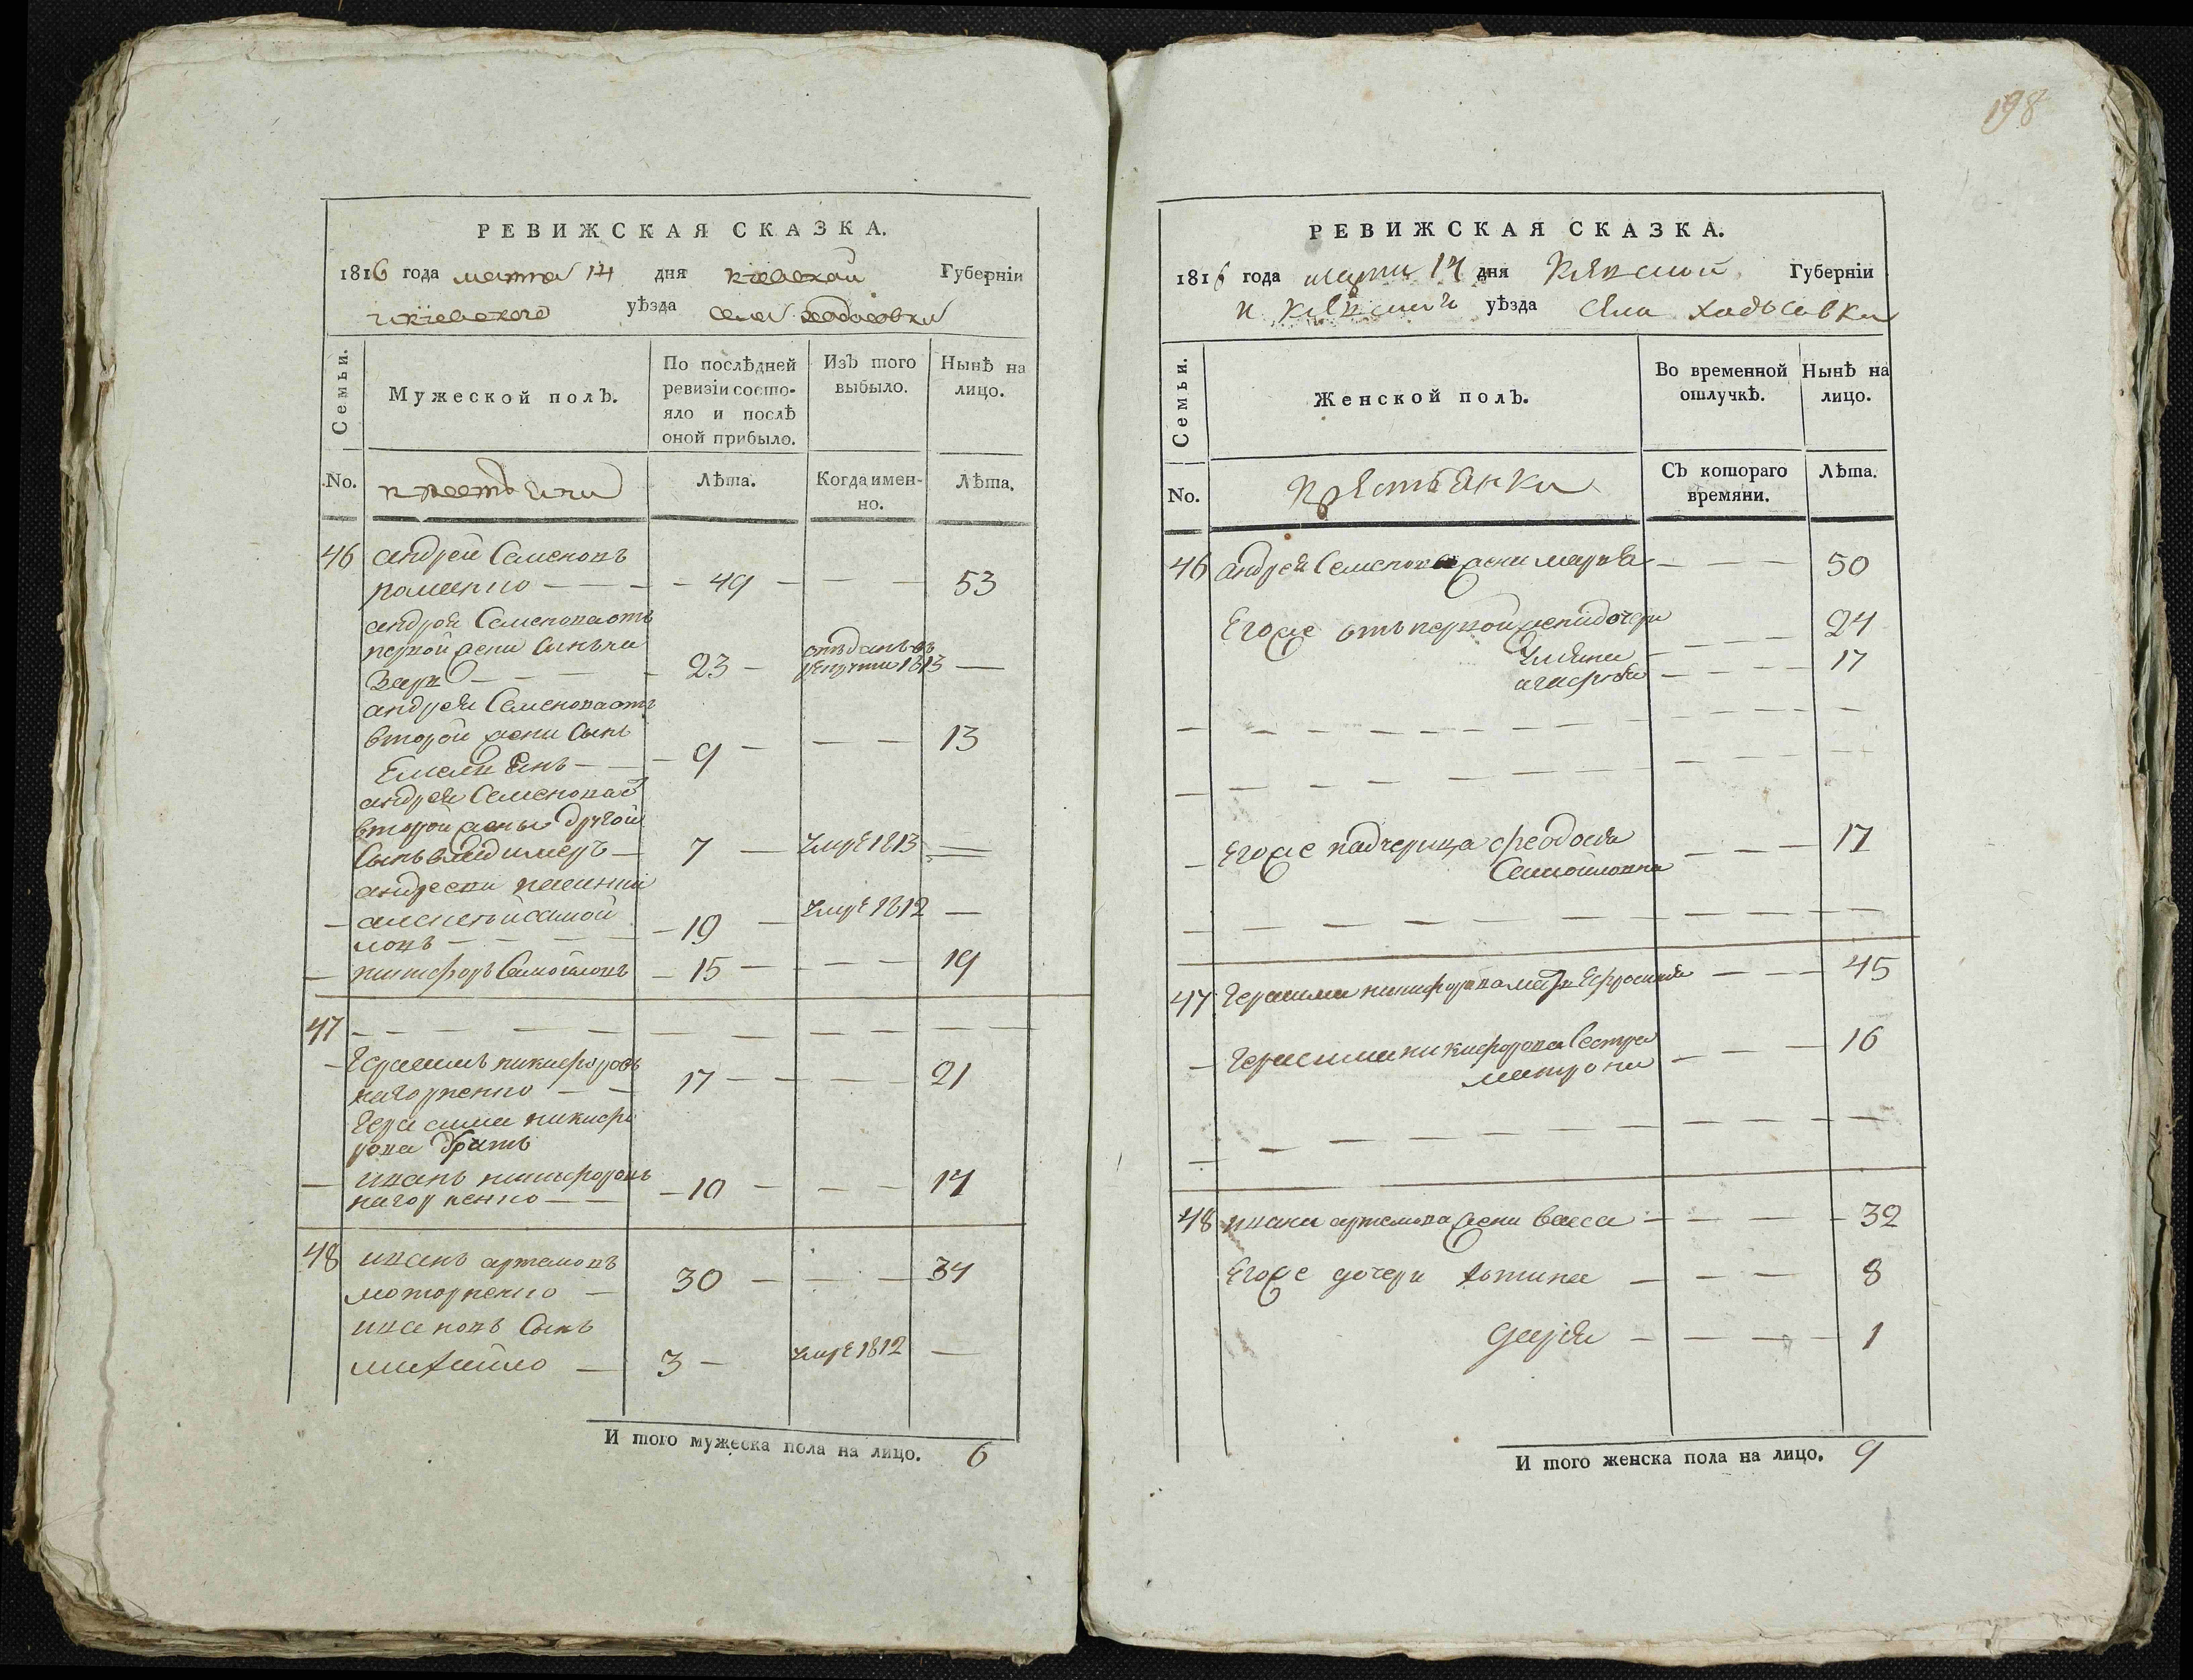 РЕВИЖСКАЯ СКАЗКА.
1816 года марта 14 дня киевской Губерніи
и киевского уѣзда села ходосовки
Семьи.
Мужеской полЪ.
По послѣдней ревизіи состояло и послѣ оной прибыло.
ИзЪ того выбыло.
Нынѣ на лицо.
No.
крестьяни
Лѣта.
Когда именно.
Лѣта.
46 андрей Семеновъ
49 53
андрея Семенова отъ
первой жени Синъ
отданъ въ
23 рекрути 1813
андрея Семенова отъ
второй жени Синъ
Емелиянъ 9 13
андрея Семенова
второй жены другой
Синъ владимеръ 7 умре 1813
алексей Самой
ловъ 19 умре 1812
никифоръ Самойловъ 15 19
47
Герасимъ никифоровъ
нагорненко 17 21
Герасима никифо
рова братъ
иванъ никифоровъ
нагорненко 10 14
48 иванъ артемовъ
моторненко 30 34
ивановъ Синъ
михайло 3 умре 1812
И того мужеска пола на лицо. 6
198
РЕВИЖСКАЯ СКАЗКА.
1816 года марта 14 дня Киевской Губерніи
и Киевского уѣзда Села Ходосовки
Семьи.
Женской полЪ.
Во временной отлучкѣ.
Нынѣ на лицо.
No.
крестьянки
СЪ котораго времяни.
Лѣта.
46 андрея Семенова жена марья 50
Егоже отъ первой жени дочери
улияна 24
агафия 17
Егоже падчерица феодосия
Самойловна 17
47 Герасима никифорова мать Ефросиния 45
Герасима никифорова Сестра
матрона 16
48 ивана артемова жена васса 32
Егоже дочери 8
дария 1
И того женска пола на лицо. 9